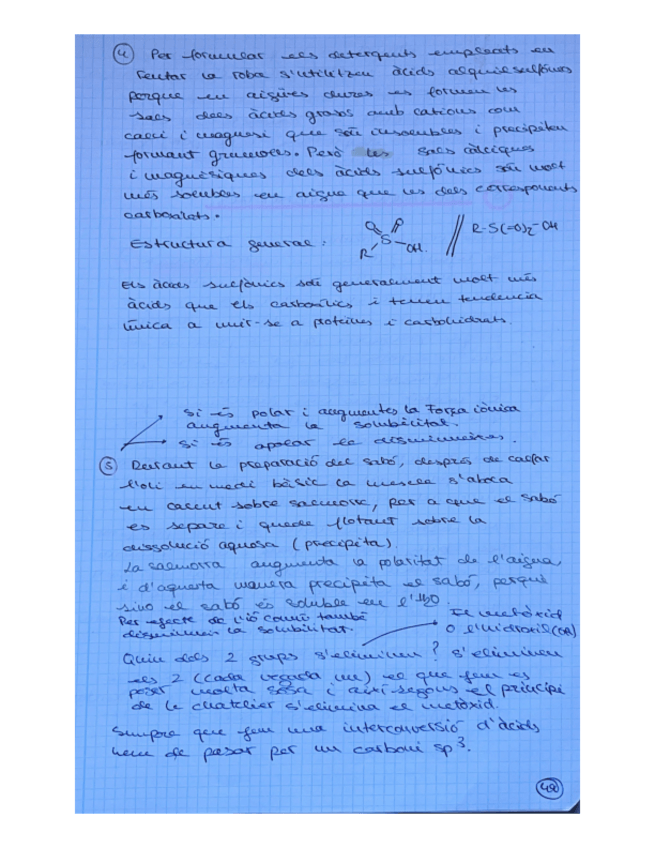 ④ Per formular els detergents empleats en
rentar la roba s'utilitzen àcids alquilsulfònics
perque en aigües dures es formen les
sals dels àcids grasos amb cations com
calci i magnesi que són insolubles i precipiten
formant grumolls. Però les sals càlciques
i magnèsiques dels àcids sulfònics són molt
més solubles en aigua que les dels corresponents
carboxilats.
Estructura general: O O S R OH // R-S(=O)2-OH
Els àcids sulfònics són generalment molt més
àcids que els carboxílics i tenen tendencia
única a unir-se a proteïnes i carbohidrats.
si és polar i augmentes la Força iònica
augmenta la solubilitat.
si és apolar la disminueixes.
⑤ Durant la preparació del sabó, després de calfar
l'oli en medi bàsic la mescla s'aboca
en calent sobre salmorra, per a que el sabó
es separe i quede flotant sobre la
dissolució aquosa (precipita).
La salmorra augmenta la polaritat de l'aigua
i d'aquesta manera precipita el sabó, perquè
sino el sabó és soluble en l'H2O
Per efecte de l'ió comú també
disminueix la solubilitat.
El metòxid
O l'hidroxil (OH)
Quin dels 2 grups s'eliminen? s'eliminen
els 2 (cada vegada un) el que fem es
posar molta sosa i així segons el principi
de Le Chatelier s'elimina el metòxid.
Sempre que fem una interconversió d'àcids
hem de passar per un carboni sp3.
48